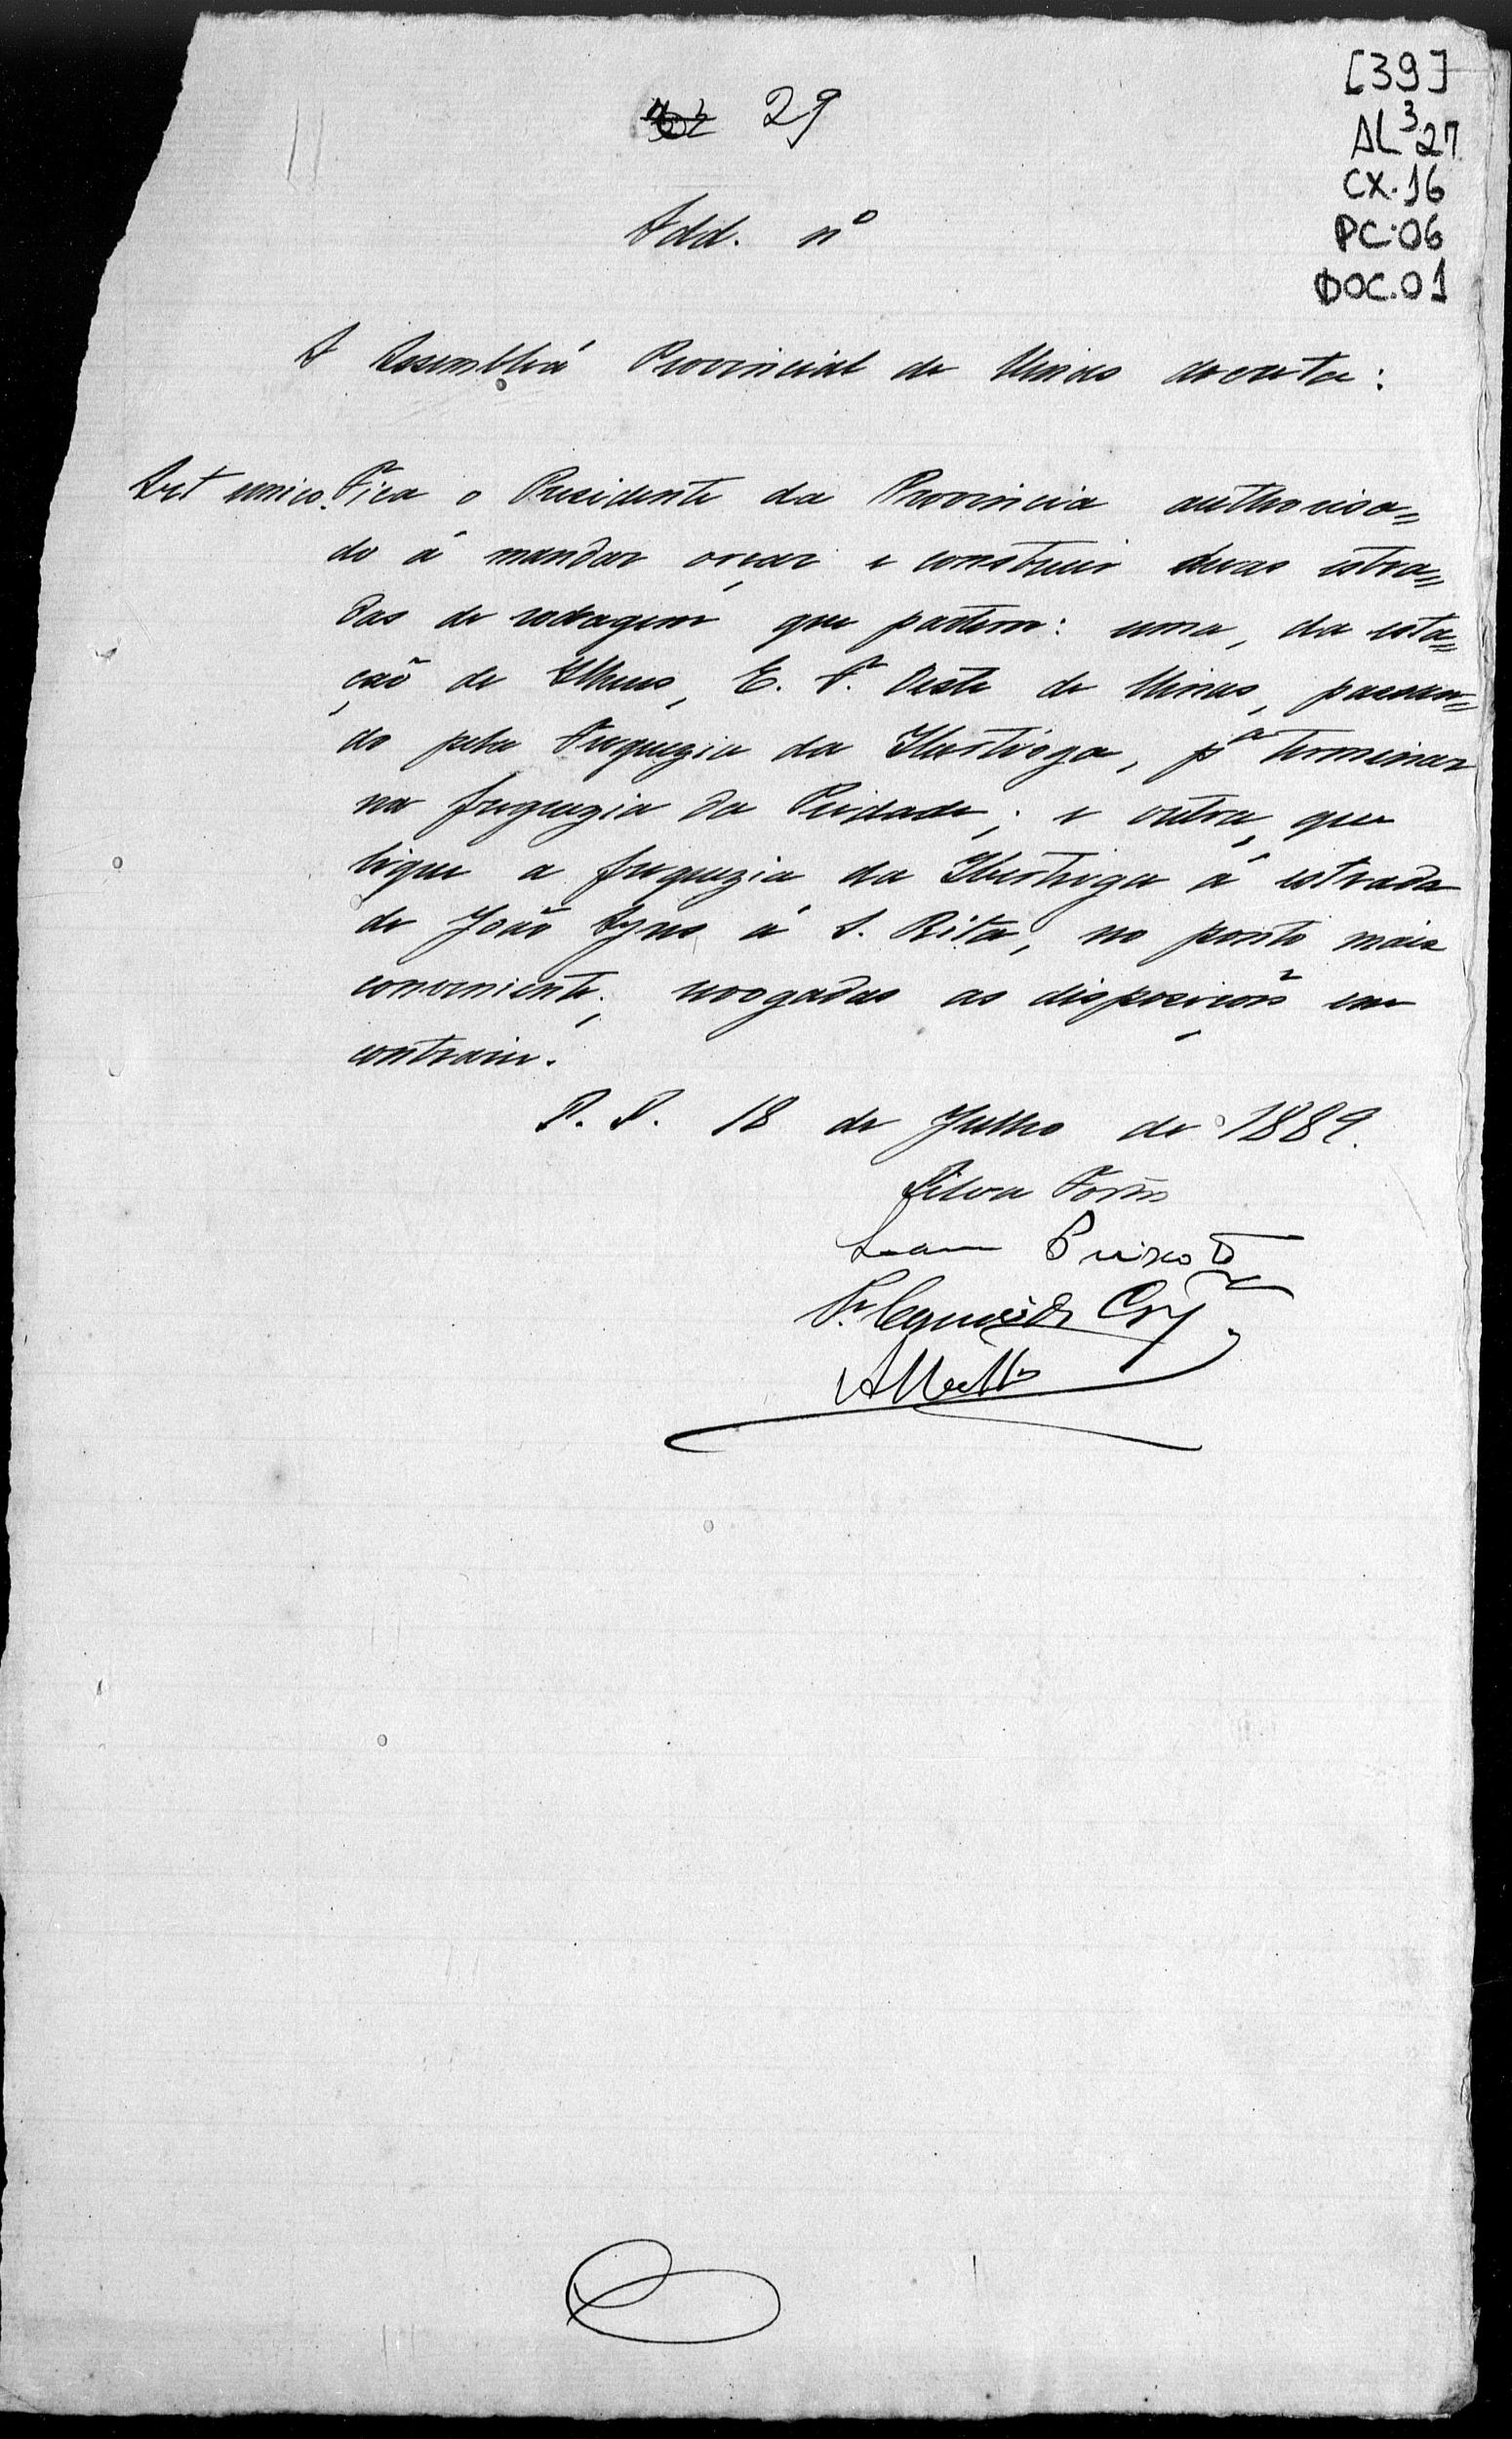 [39]
AL³27
CX.16
PC.06
DOC.01
29
Add. nº
A Assembleá Provincial de Minas decreta:
Art unico. Fica o Presidente da Provincia authorisa=
do á mandar orçar e construir duas estra=
das de rodagem que partem: uma, da esta=
çaõ de Ilheus, E. F. Oeste de Minas, passan=
do pela Freguezia da Ibertioga, pª terminar
na freguezia da Piedade; e outra, que
ligue a freguezia da Ibertioga á estrada
de Joaõ Ayres á S. Rita, no ponto mais
conveniente; revogadas as disposiçoẽs em
contrario.
P. P. 18 de Julho de 1889.
Silva Fortes
Peixoto